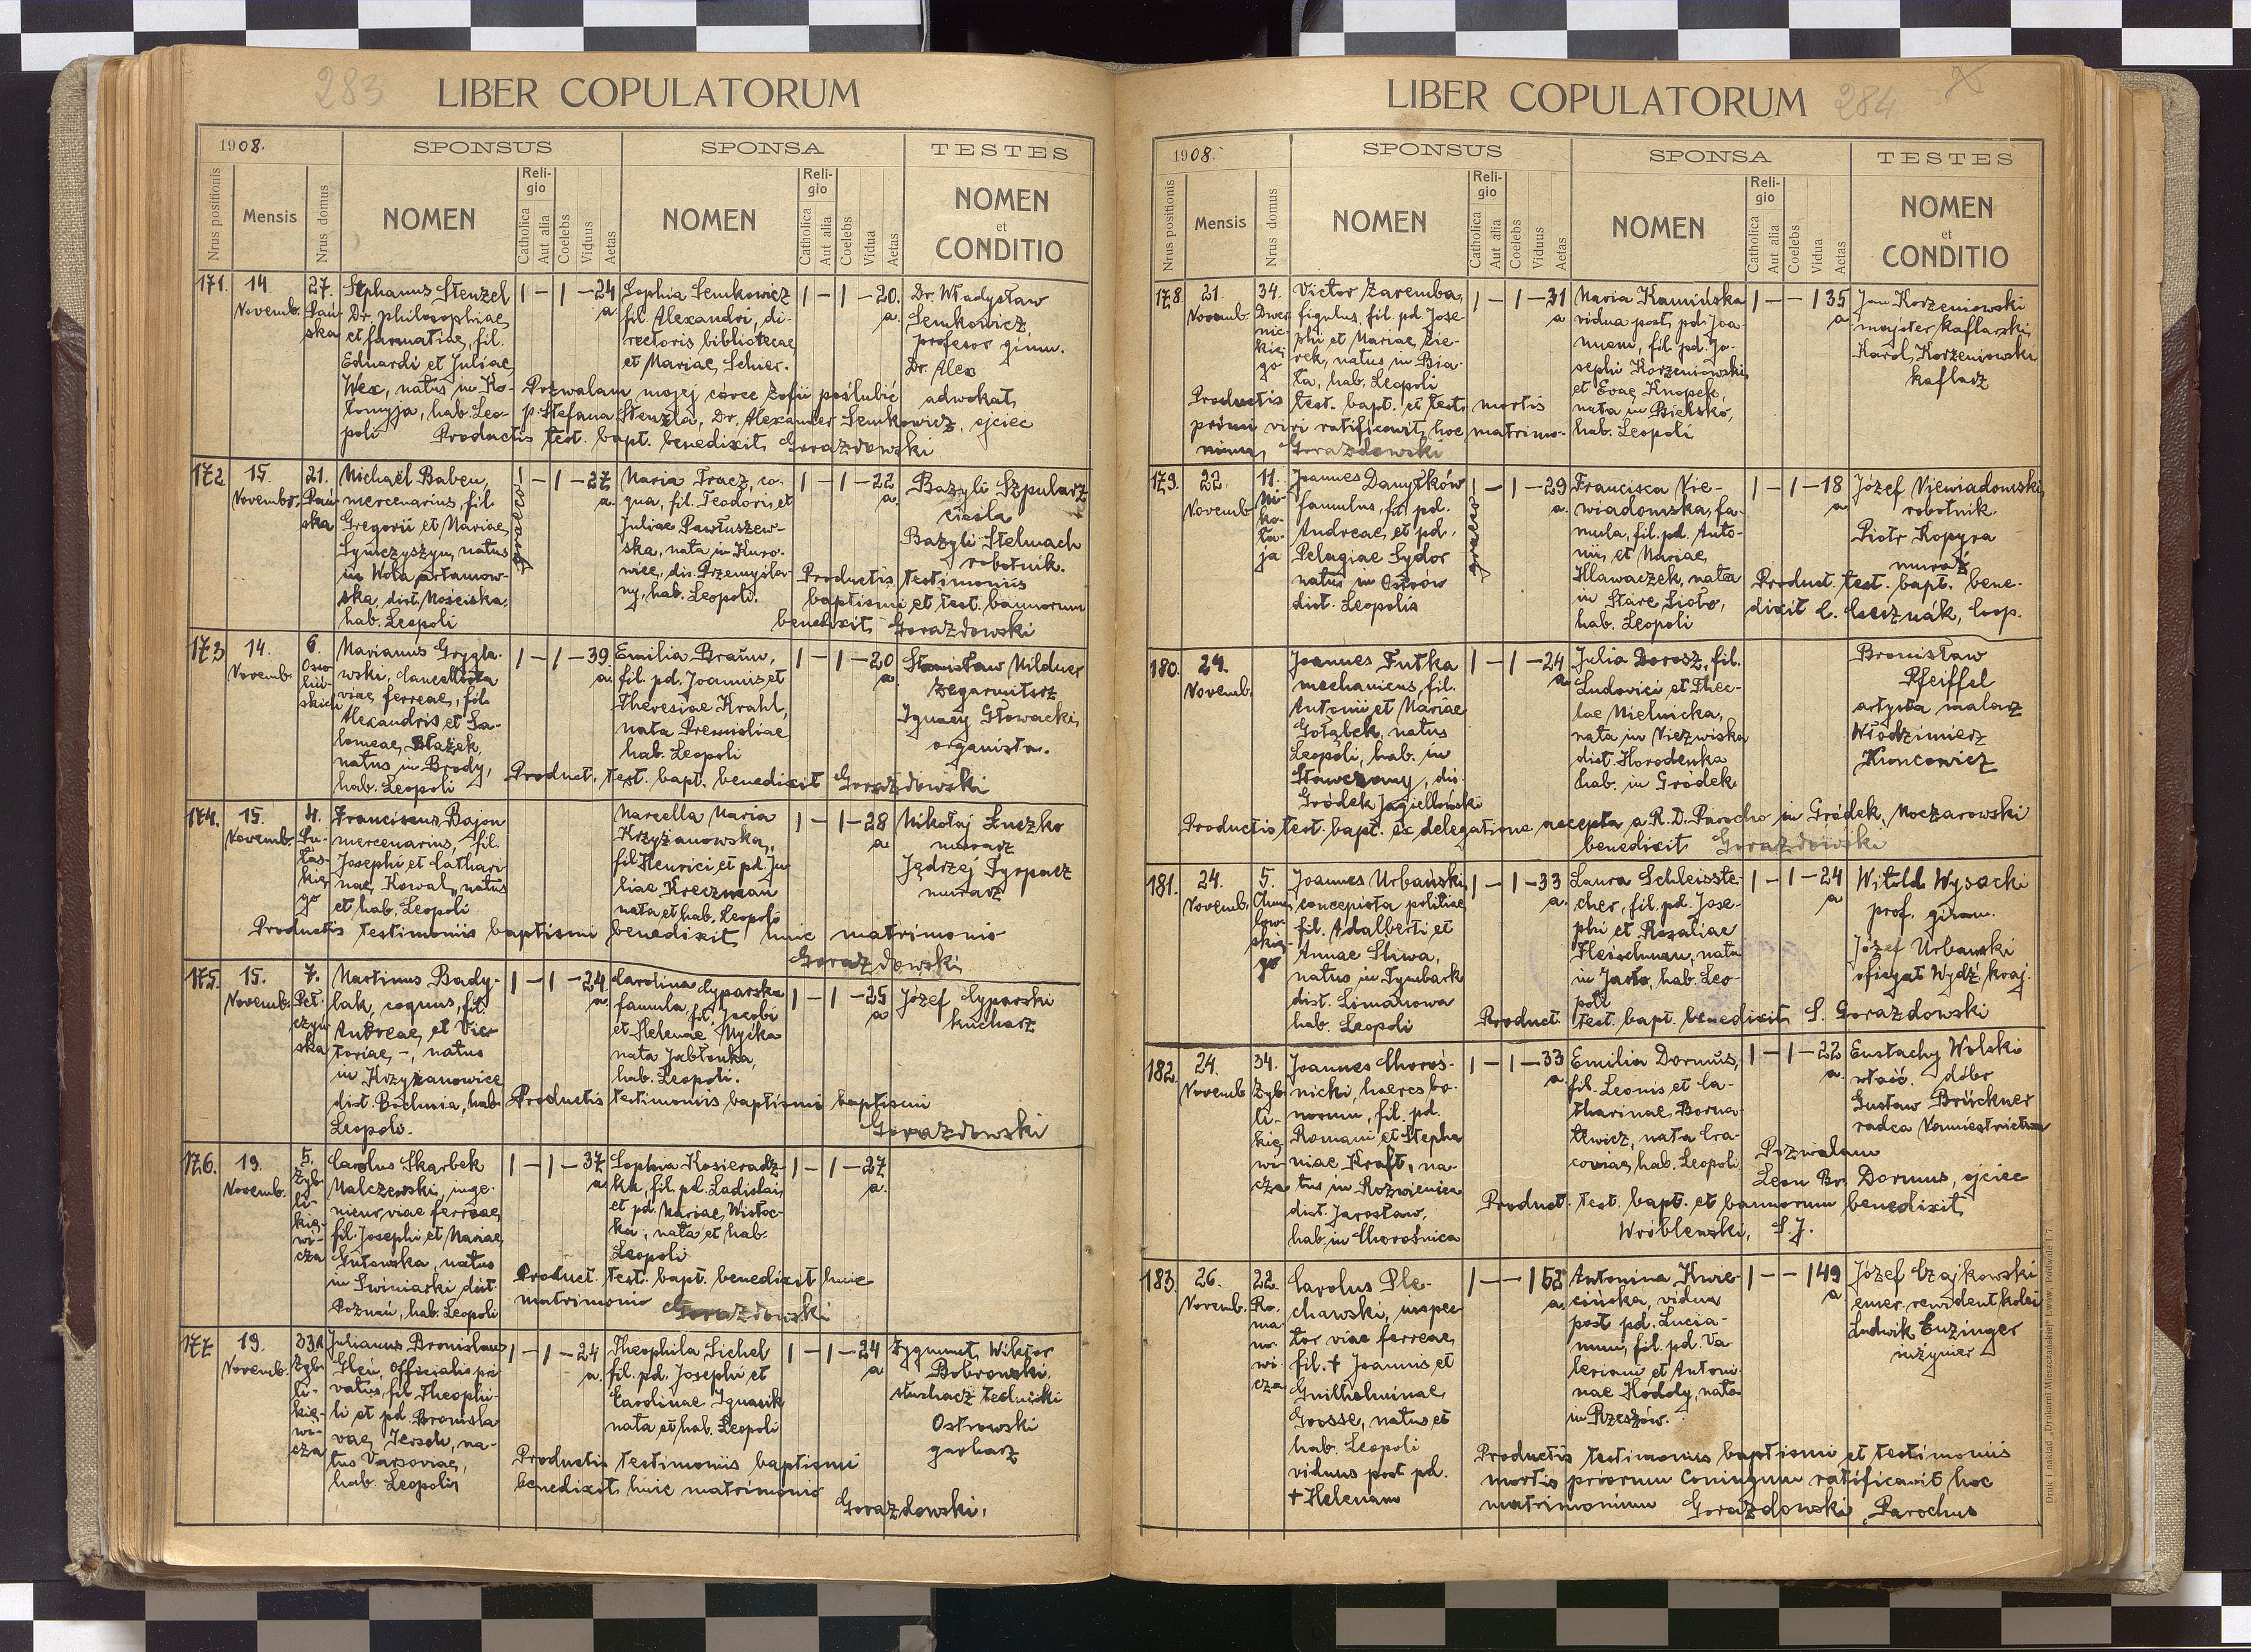 283
LIBER COPULATORUM
1908.
SPONSUS
SPONSA
TESTES
Nrus positionis
Mensis
Nrus domus
NOMEN
Religio
Catholica
Aut alia
Coelebs
Viduus
Aetas
NOMEN
Religio
Catholica
Aut alia
Coelebs
Vidua
Aetas
NOMEN
et
CONDITIO
171. 14. Novemb. 27. Pańska
Stephanus Stenzel
Dr. philosophiae
et farmatiae, fil.
Eduardi et Juliae
Wex, natus in Ko-
łomyja, hab. Leo-
poli
1 – 1 – 24 a.
Sophia Semkowicz
fil. Alexandri, di-
rectoris bibliotecae
et Mariae, Scher.
1 – 1 – 20. a.
Dr. Władysław
Semkowicz,
profesor gimn.
Dr. Alex
adwokat,
Pozwalam mojej córce Zofii poślubić
p. Stefana Stenzla, Dr. Alexander Semkowicz, ojciec
Productis test. bapt. benedixit Gorazdowski
172. 15. Novembr. 21. Pańska
Michaël Baben,
mercenarius, fil.
Gregorii et Mariae
Symczyszyn, natus
in Wola artamow-
ska, dist. Mościska,
hab. Leopoli
1 – 1 – 27 a.
graeco
Maria Tracz, co-
qua, fil. Teodori, et
Juliae Pawłuszew-
ska, nata in Kuro-
wice, dis. Przemyśla-
ny, hab. Leopoli.
1 – 1 – 22 a.
Bazyli Szpularz
cieśla
Bazyli Stelmach
robotnik.
Productis testimoniis
baptismi et test. bannorum
benedixit Gorazdowski
173 14. Novemb. 6. Ossolińskich
Marianus Grygla-
wski, Cancelista
viae ferreae, fil.
Alexandris et Sa-
lomeae, Błażek,
natus in Brody,
hab. Leopoli
1 – 1 – 39 a.
Emilia Braun,
fil. pd. Joannis et
Theresiae Krahl,
nata Premisliae
hab. Leopoli
1 – 1 – 20 a
Stanisław Mildner
zegarmistrz
Ignacy Głowacki,
organista.
Product. test. bapt. benedixit Gorazdowski
174. 15. Novemb. 4. Pułaskiego
Franciscus Bajon
mercenarius, fil.
Josephi et Cathari-
nae, Kowal, natus
et hab. Leopoli
Marcella Maria
Krzyżanowska,
fil. Henrici et pd. Ju-
liae Kreczman
nata et hab. Leopoli
1 – 1 – 28 a
Mikołaj Łuczko
murarz
Jędrzej Tyrpacz
murarz
Productis testimoniis baptismi benedixit huic matrimonio
Gorazdowski
175. 15. Novemb. 7. Pełczyńska
Martinus Bady-
lak, coquus, fil.
Andreae, et Vic-
toriae, –, natus
in Krzyżanowice
dist. Bochnia, hab.
Leopoli.
1 – 1 – 24 a.
Carolina Cyparska
famula, fil. Jacobi
et Helenae, Myćka
nata Jabłonka,
hab. Leopoli.
1 – 1 – 25 a
Józef Cyparski
kucharz
Productis testimoniis baptismi baptismi
Gorazdowski
176. 19. Novemb. 5. Zyblikiewicza
Carolus Skarbek
Malczewski, inge-
nieur viae ferreae,
fil. Josephi et Mariae
Gutowska, natus
in Swiniarki dist.
Poznań, hab. Leopoli
1 – 1 – 37 a
Sophia Kosieradz-
ka, fil. pd. Ladislai
et pd. Mariae, Wisłoc-
ka, nata et hab.
Leopoli
1 – 1 – 27 a.
Product. test. bapt. benedixit huic
matrimonio Gorazdowski
177 19. Novemb. 33A Zyblikiewicza
Julianus Bronislaus
Gleń, officialis pri-
vatus, fil. Theophi-
li et pd. Bronisla-
vae, Jersch, na-
tus Varsoviae,
hab. Leopolis
1 – 1 – 24 a.
Theophila Sichel
fil. pd. Josephi et
Carolinae Ignasik
nata et hab. Leopoli
1 – 1 – 24 a
Zygmunt Wiktor
Bobrowski,
słuchacz techniki
Ostrowski
garbarz
Productis testimoniis baptismi
benedixit huic matrimonio
Gorazdowski.
LIBER COPULATORUM
284
1908.
SPONSUS
SPONSA
TESTES
Nrus positionis
Mensis
Nrus domus
NOMEN
Religio
Catholica
Aut alia
Coelebs
Viduus
Aetas
NOMEN
Religio
Catholica
Aut alia
Coelebs
Vidua
Aetas
NOMEN
et
CONDITIO
178. 21. Novemb. 34. Dwernickiego
Victor Zaremba,
figulus, fil. pd. Jose-
phi et Mariae, Zie-
rek, natus in Bia-
ła, hab. Leopoli
1 – 1 – 31 a
Maria Kamińska
vidua post pd. Joa-
nnem, fil. pd. Jo-
sephi Korzeniowski
et Evae, Knopek,
nata in Bielsko,
hab. Leopoli
1 – – 1 35 a
Jan Korzeniowski
majster kaflarski,
Karol Korzeniowski
kaflarz
Productis test. bapt. et test. mortis
primi viri ratificavit hoc matrimo-
nium, Gorazdowski
179. 22. Novemb 11. Mikołaja
Joannes Danyłków
famulus, fil. pd.
Andreae, et pd.
Pelagiae Sydor
natus in Ostrów
dist. Leopolis
1 – 1 – 29 a.
graeco
Francisca Nie-
wiadomska, fa-
mula, fil. pd. Anto-
nii, et Mariae,
Hlawaczek, nata
in Stare Sioło,
hab. Leopoli
1 – 1 – 18 a
Józef Niewiadomski,
robotnik.
Piotr Kopyra
murarz
Product. test. bapt. bene-
dixit
180. 24. Novemb.
Joannes Futka
mechanicus, fil.
Antonii et Mariae
Gołąbek, natus
Leopoli, hab. in
Stawczany, dis.
Gródek Jagielloński
1 – 1 – 24 a.
Julia Dorosz, fil.
Ludovici et Thec-
lae Mielnicka,
nata in Niezwiska
dist. Horodenka
hab. in Gródek
Bronisław
Pfeiffel
artysta malarz
Włodzimierz
Productis test. bapt. ex delegatione accepta a R. D. Parocho in Gródek, Moczarowski
benedixit Gorazdowski
181. 24. Novemb. 5. Chmielowskiego
Joannes Urbański,
concepista politiae,
fil. Adalberti et
Annae Sliwa,
natus in Tymbark
dist. Limanowa
hab. Leopoli
1 – 1 – 33 a.
Laura Schleisste-
cher, fil. pd. Jose-
phi et Rosaliae
Fleischman, nata
in Jasło, hab. Leo-
poli
1 – 1 – 24 a
Witold Wysocki
prof. gimn.
Józef Urbanski
oficyał Wydz. kraj.
Product. test. bapt. benedixit S. Gorazdowski
182. 24. Novemb 34. Zyblikiewicza
Joannes Choroś-
nicki, haeres bo-
norum, fil. pd.
Romani et Stepha-
niae Kraft, na-
tus in Rozwienica
dist. Jarosław,
hab. in Chorośnica
1 – 1 – 33 a.
Emilia Dormus,
fil. Leonis et Ca-
tharinae, Borna-
tewicz, nata Cra-
coviae, hab. Leopoli
1 – 1 – 22 a.
Eustachy Wolski
właść. dóbr
Gustaw Brückner
radca Namiestnictwa
Pozwalam
Leon Br. Dormus, ojciec
Product. test. bapt. et bannorum benedixit,
Wroblewski, S. J.
183. 26. Novemb. 22. Romanowicza
Carolus Ple-
chawski, inspec-
tor viae ferreae,
fil. + Joannis et
Guilhelminae,
Grosse, natus et
hab. Leopoli
viduus post pd.
+ Helenam
1 – – 1 58 a.
Antonina Kwie-
cińska, vidua
post pd. Lucia-
num, fil. pd. Va-
leriani et Antoni-
nae Hodoly, nata
in Rzeszów.
1 – – 1 49 a
Józef Czajkowski
emer. rewident kolei
Ludwik Enzinger
inżynier
Productis testimoniis baptismi et testimoniis
mortis priorum Coniugum ratificavit hoc
matrimonium Gorazdowski, Parochus
Druk i nakład „Drukarni Mieszczańskiej" Lwów, Podwale l. 7